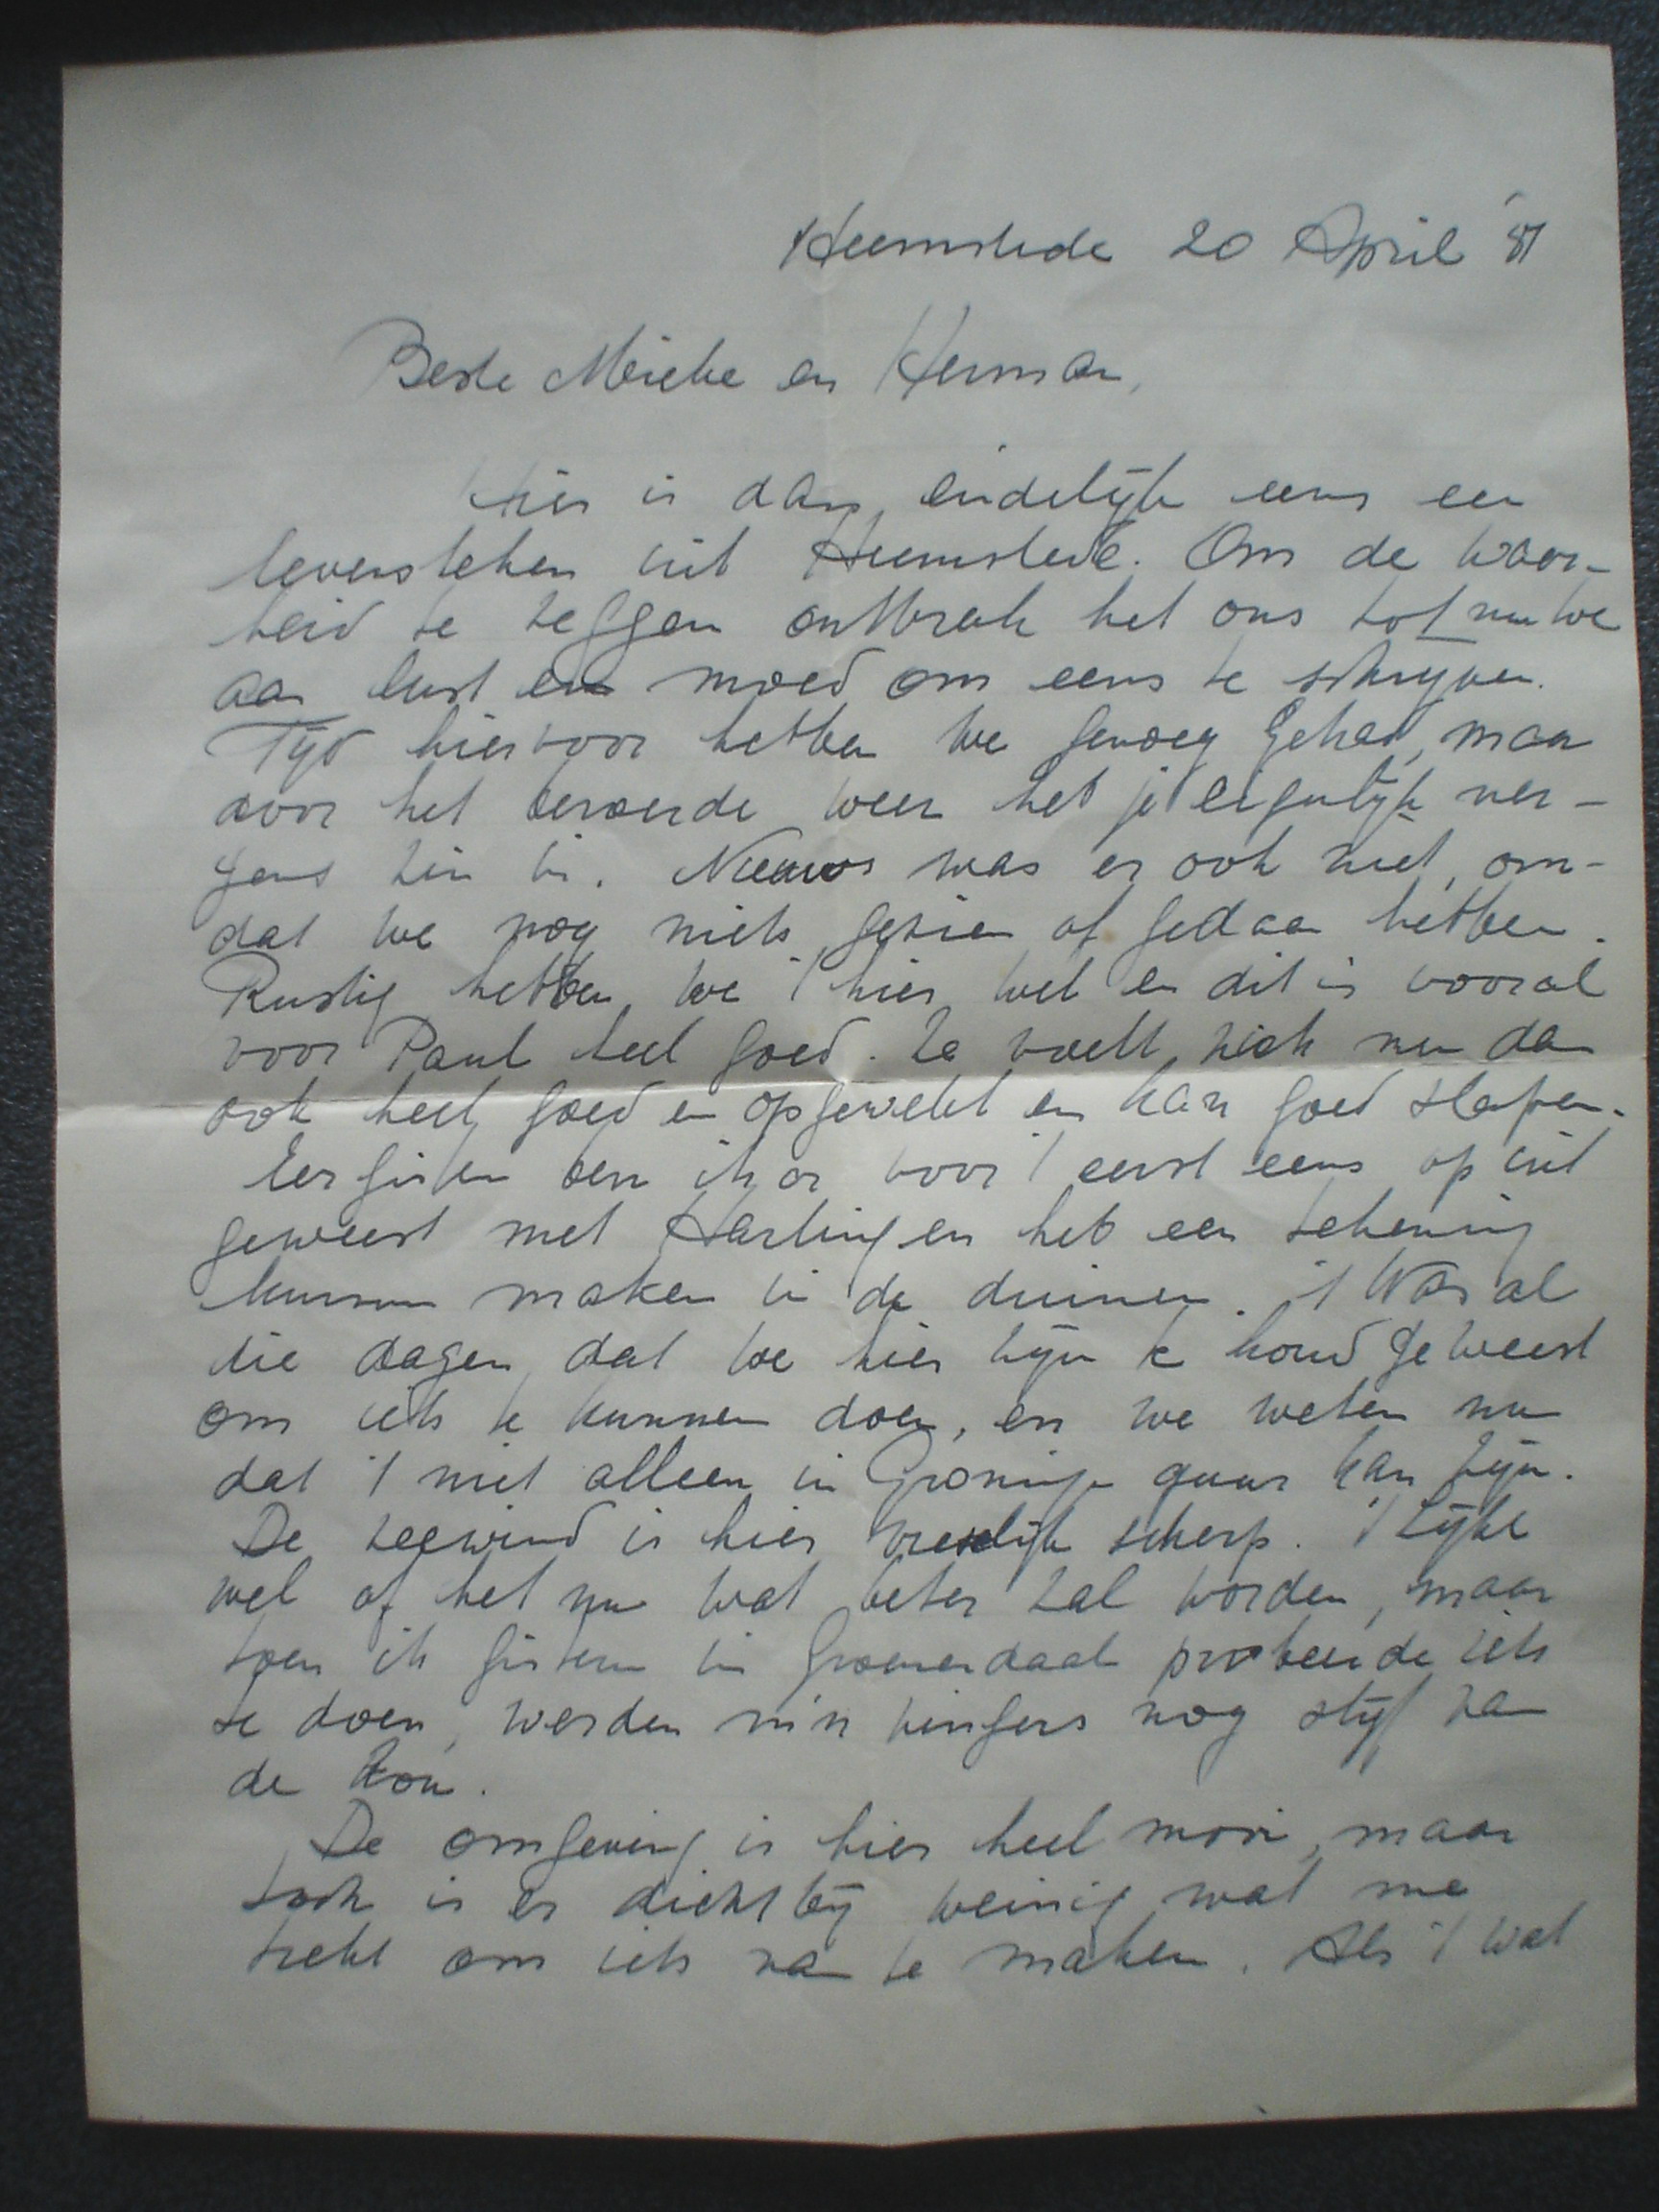 Heemstede 20 April '51
Beste Mieke en Herman,
Hier is dan eindelijk eens een
levensteken uit Heemstede. Om de waar-
heid te zeggen ontbrak het ons tot nu toe
aan lust en moed om eens te schrijven.
Tijd hiervoor hebben we genoeg gehad, maar
door het beroerde weer heb je eigenlijk ner-
gens zin in. Nieuws was er ook niet, om-
dat we nog niets gezien of gedaan hebben.
Rustig hebben we 't hier wel en dit is vooral
voor Paul heel goed. Ze voelt zich nu dan
ook heel goed en opgewekt en kan goed slapen.
Eergisteren ben ik er voor 't eerst eens op uit
geweest met Harting en heb een tekening
kunnen maken in de duinen. 't Was al
die dagen, dat we hier zijn te koud geweest
om iets te kunnen doen, en we weten nu
dat 't niet alleen in Groningen guur kan zijn.
De zeewind is hier vreselijk scherp. 't Lijkt
wel of het nu wat beter zal worden, maar
toen ik gisteren in Groenendaal probeerde iets
te doen, werden m'n vingers nog stijf van
de kou.
De omgeving is hier heel mooi, maar
toch is er dichtbij weinig wat me
trekt om iets van te maken. Als 't wat